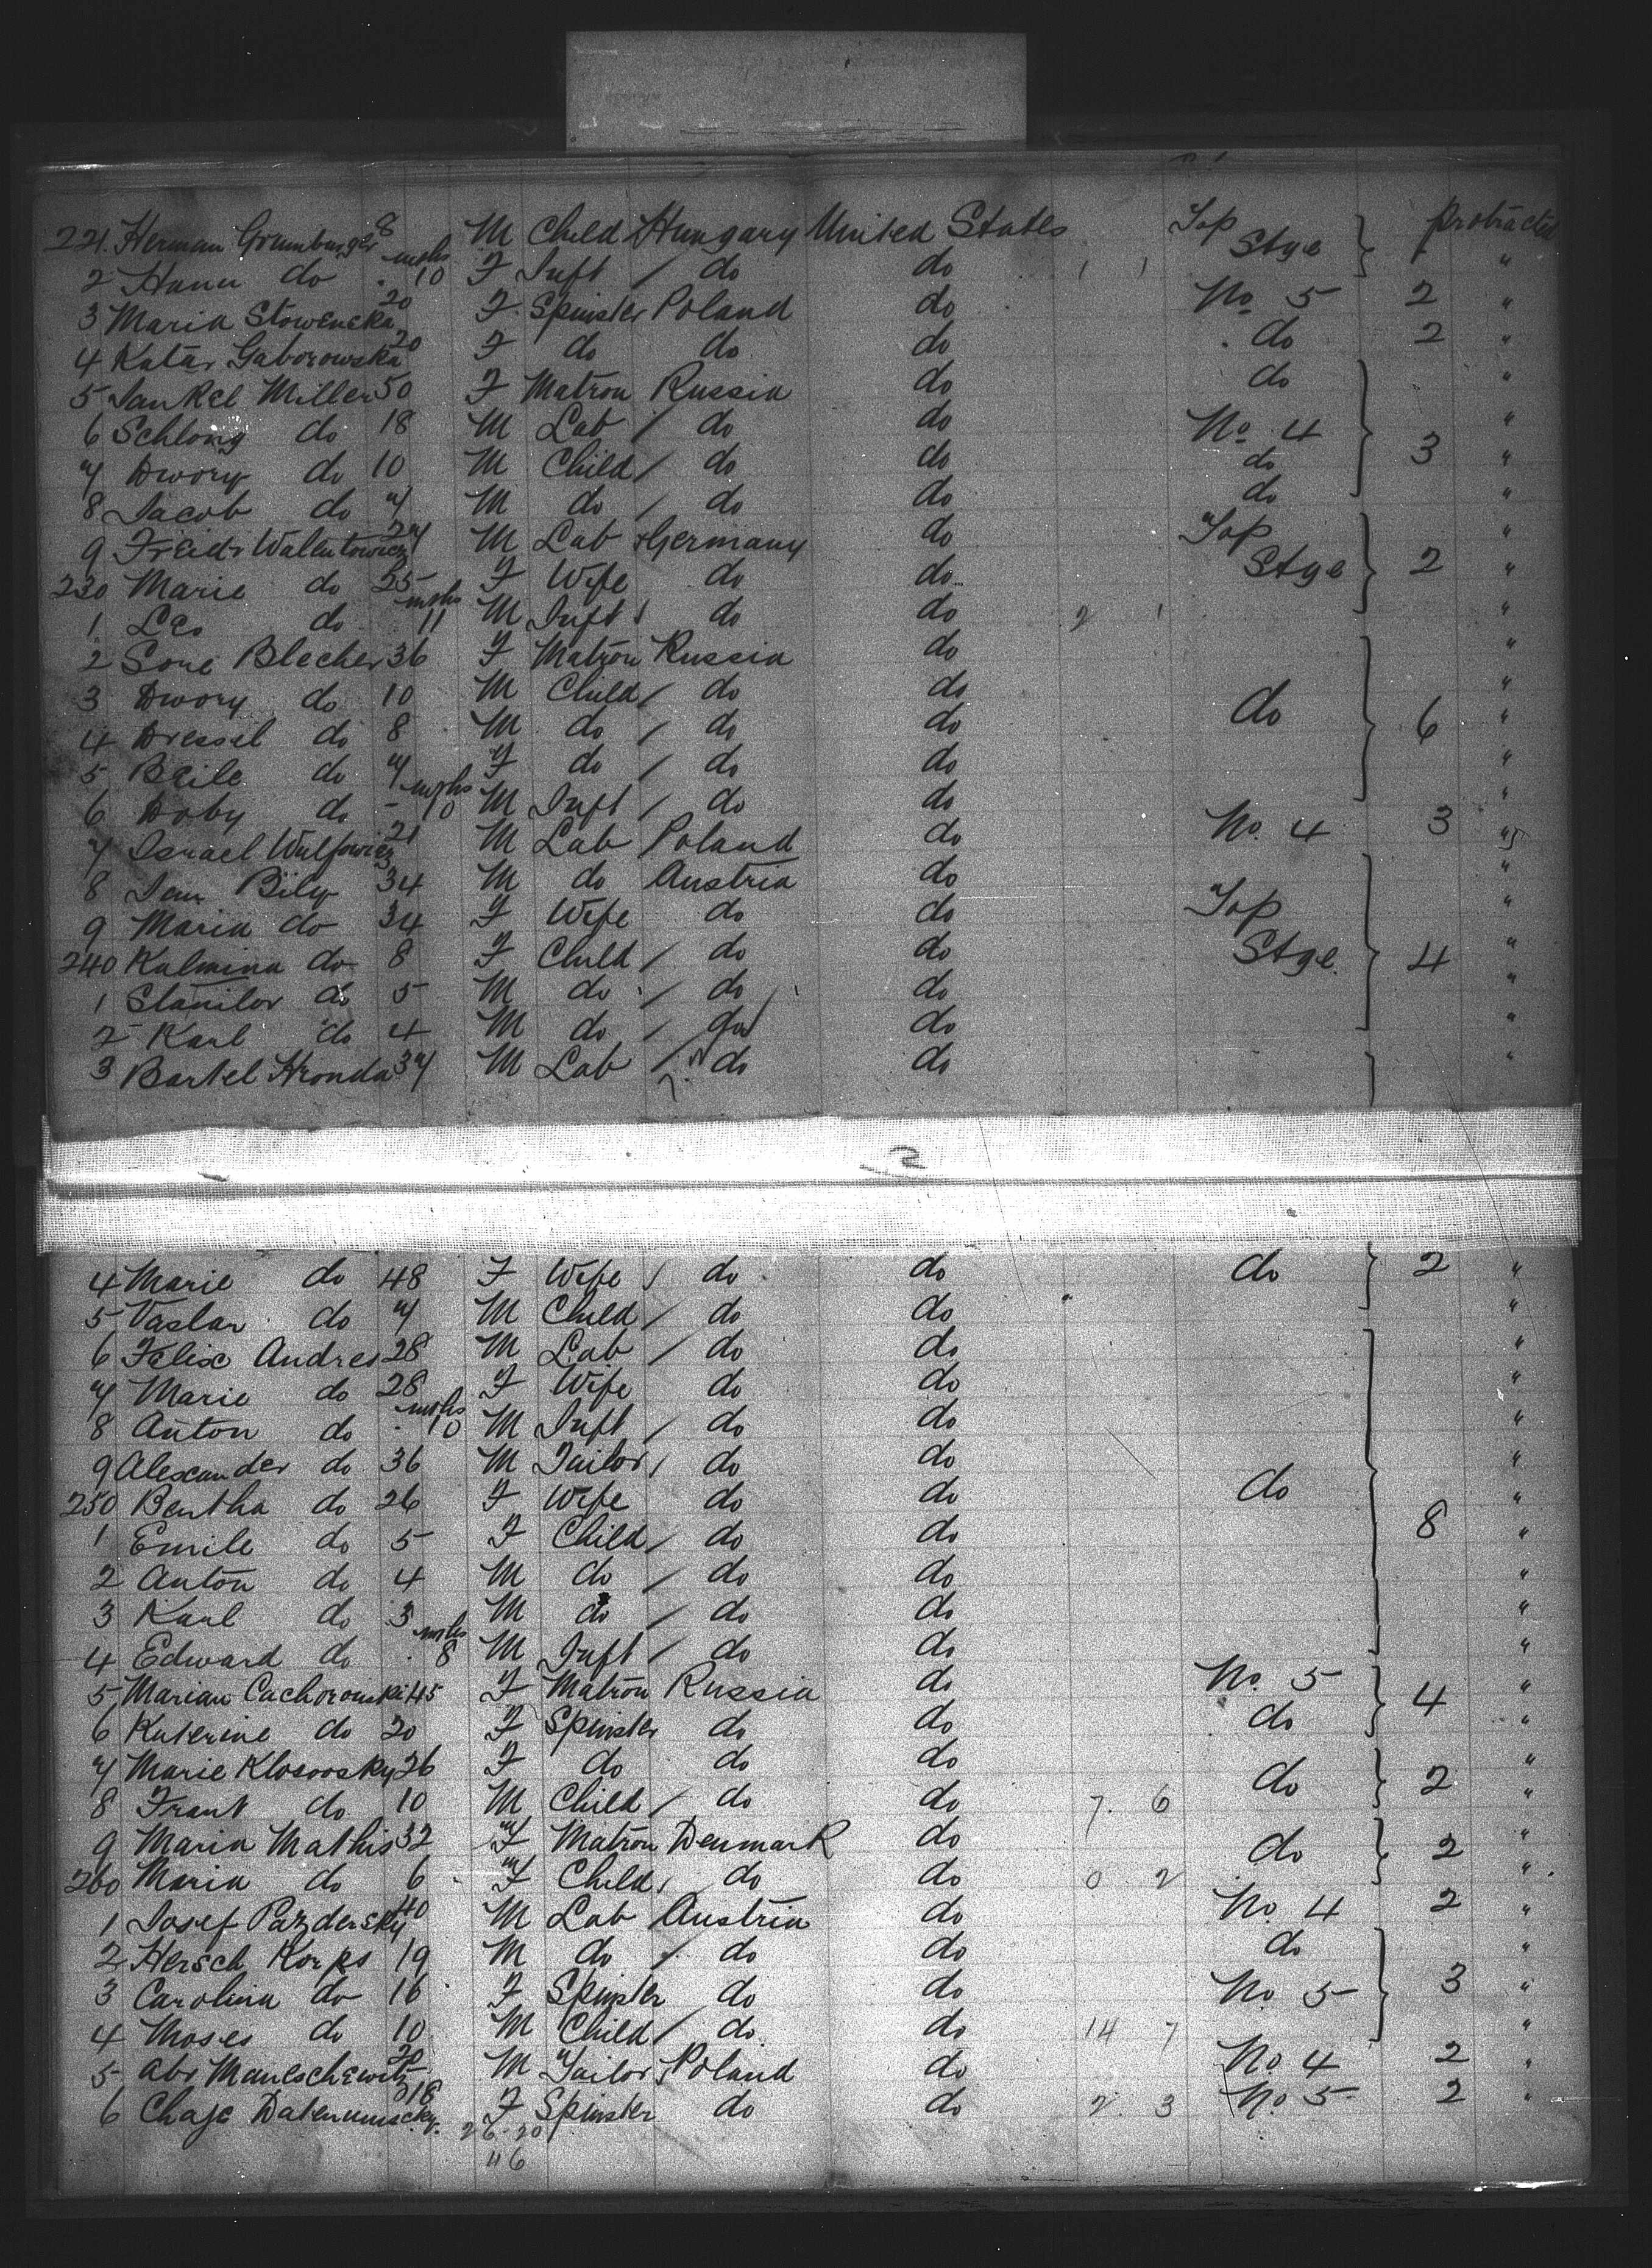 221. Herman Grumburger 8 M Child Hungary United States Top Stge 1 protracted
2 Hanu do mths 10 F Inft / do do 1 1 "
3 Maria Stowencka 20 F Spinster Poland do No 5 2 "
4 Katar Gaborowska 20 F do do do do 2 "
5 Jankel Miller 50 F Matron Russia do do "
6 Schlong do 18 M Lab / do do No 4 "
7 Dwory do 10 M Child / do do do 3 "
8 Jacob do 7 M do / do do do "
9 Freidr Walentowicz 27 M Lab Germany do Top "
230 Marie do 25 F Wife do do Stge 2 "
1 Leo do mths 11 M Inft / do do 2 1 "
2 Sone Blecher 36 F Matron Russia do "
3 Dwory do 10 M Child / do do do "
4 Dressel do 8 M do / do do 6 "
5 Beile do 7 F do / do do "
6 Doby do - mths 10 M Inft / do do "
7 Israel Wulfowicz 21 M Lab Poland do No. 4 3 "
8 Jan Bily 34 M do Austria do "
9 Maria do 34 F Wife do do Top "
240 Kalmina do 8 F Child / do do Stge. 4 "
1 Stanilov do 5 M do / do do "
2 Karl do 4 M do / do do "
3 Bartel Hronda 37 M Lab / do do "
2
4 Marie do 48 F Wife / do do do 2 "
5 Vaslav do 7 M Child / do do "
6 Felix Andres 28 M Lab / do do "
7 Marie do 28 F Wife do do "
8 Anton do - mths 10 M Inft / do do "
9 Alexander do 36 M Tailor / do do "
250 Bertha do 26 F Wife do do do "
1 Emile do 5 F Child / do do 8 "
2 Anton do 4 M do / do do "
3 Karl do 3 M do / do do "
4 Edward do . mths 8 M Inft / do do "
5 Marian Cachorowski 45 F Matron Russia do No. 5 4 "
6 Katerine do 20 F Spinster do do do "
7 Marie Klosovsky 26 F do do do do 2 "
8 Frant do 10 M Child / do do 7. 6 "
9 Maria Mathis 32 F Matron Denmark do do 2 "
260 Maria do 6 F Child / do do 0 2 "
1 Josef Pazdersky 40 M Lab Austria do No. 4 2 "
2 Hersch Korps 19 M do / do do do "
3 Carolina do 16 F Spinster do do No 5 3 "
4 Moses do 10 M Child / do do 14 7 "
5 Abr Maneschewitz 20 M Tailor / Poland do No 4 2 "
6 Chaje 18 F Spinster do do 2 3 No. 5 2 "
26-20
46